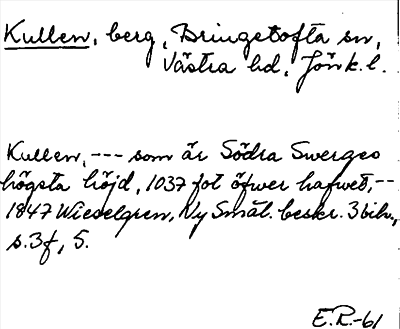 Kullen, berg, Bringetofta sn,
Västra hd, Jönk.l.
Kullen, --- som är Södra Sweriges
högsta höjd, 1037 fot öfwer hafwet, --
1847 Wieselgren, Ny Smål. beskr. 3 bih.,
s. 3 f, 5.
E.R.-61